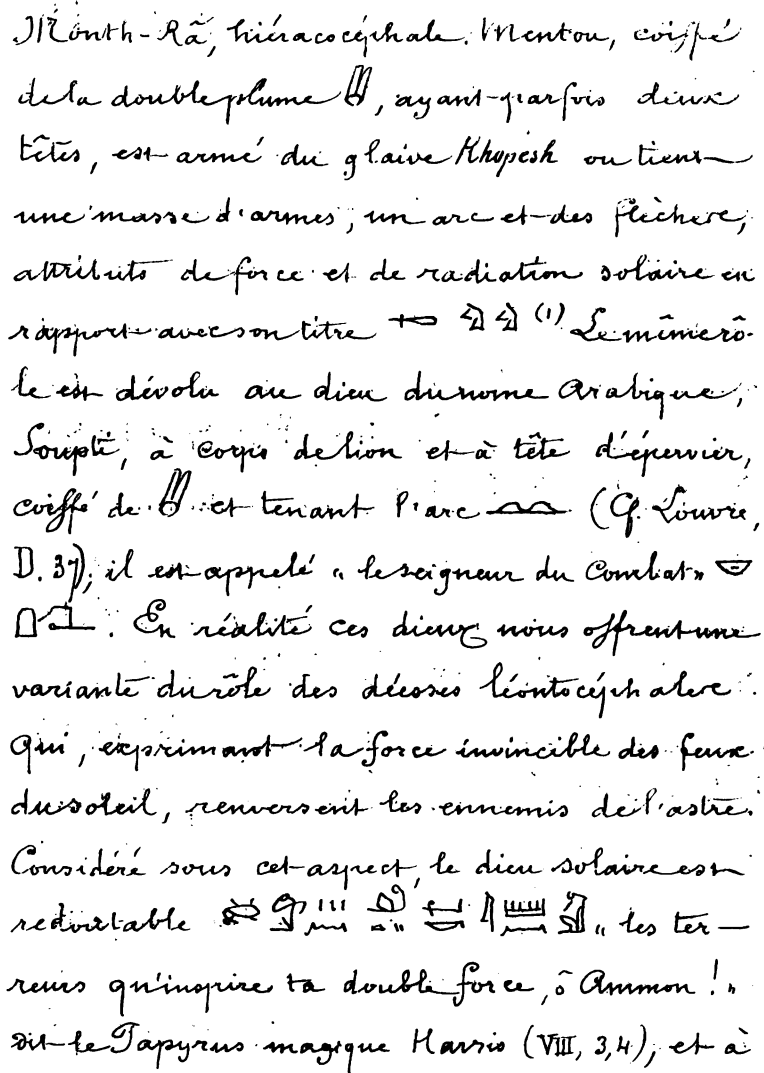 Month-Râ, hiéracocéphale. Mentou, coiffé
de la double plume, ayant parfois deux
têtes, est armé du glaive Khopesh ou tient
une masse d'armes, un arc et des flèches,
attributs de force et de radiation solaire en
rapport avec son titre (1) Le même rô-
le est dévolu au dieu du nome Arabique,
Soupti, à corps de lion et à tête d'épervier,
coiffé de et tenant l'arc (Cf. Louvre,
D. 37); il est appelé « le seigneur du Combat »
. En réalité ces dieux nous offrent une
variante du rôle des déesses léontocéphales
qui, exprimant la force invincible des feux
du soleil, renversent les ennemis de l'astre.
Considéré sous cet aspect, le dieu solaire est
redoutable « les ter-
reurs qu'inspire ta double force, ô Ammon ! »
dit le Papyrus magique Harris (VIII, 3,4), et à